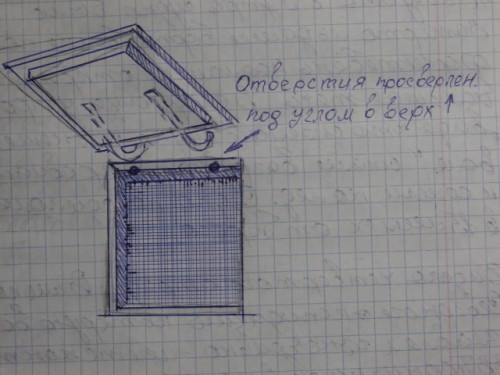 Отверстия просверлен.
под углом в верх